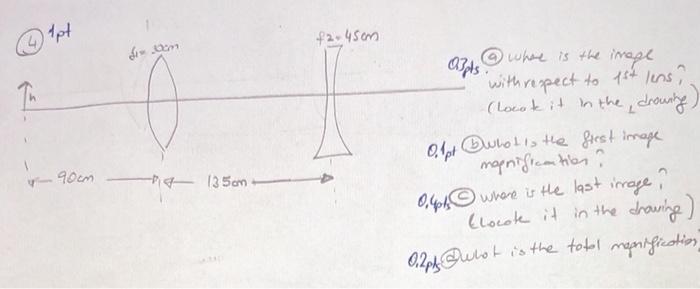 4 1pt
f2=45cm
h
90cm
135cm
0.3pts a where is the image
with respect to 1st lens?
(Locate it in the drawing)
0.1pt b what is the first image
magnification?
0.4pts c where is the last image?
(Locate it in the drawing)
0.2pts d what is the total magnification